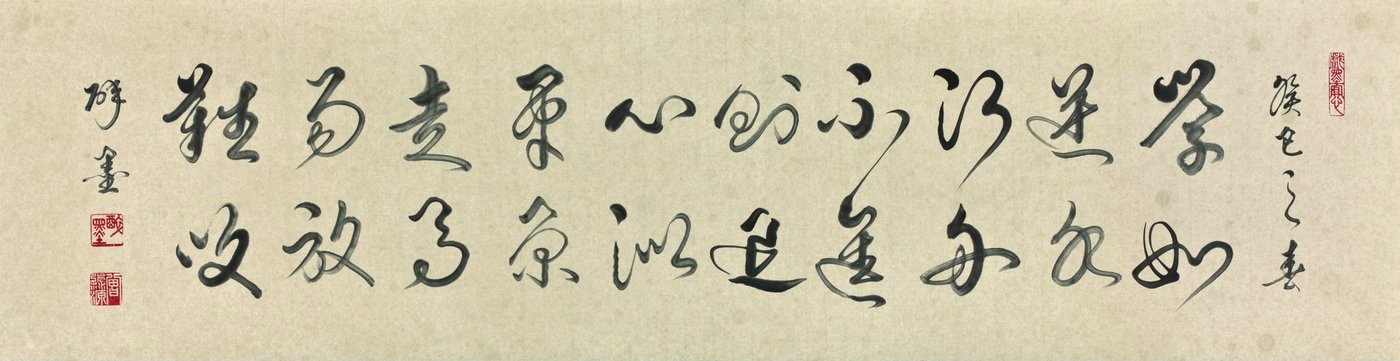 癸巳之春
學如
逆水
行舟
不進
則退
心似
平原
走馬
易放
難收
醉墨
醉墨